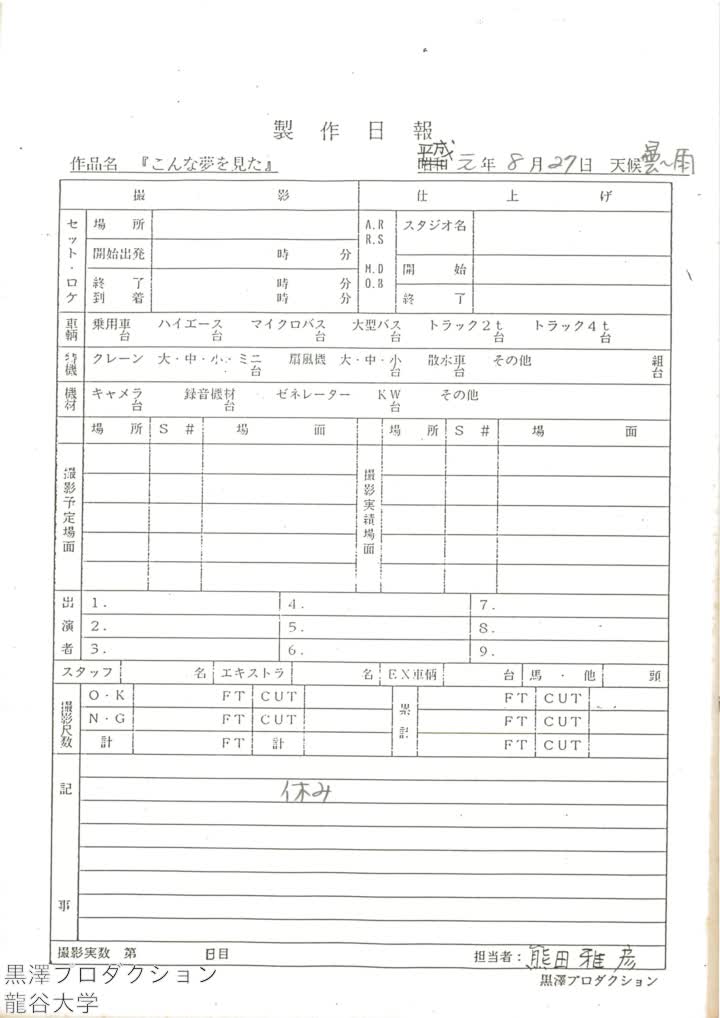 製作日報
作品名 『こんな夢を見た』 平成 昭和 元年 8月27日 天候 曇〜雨
撮影 仕上げ
セット・ロケ 場所 A.R R.S スタジオ名
開始出発 時 分 M.D O.B 開始
終了 時 分
到着 時 分 終了
車輌 乗用車 台 ハイエース 台 マイクロバス 台 大型バス 台 トラック2t 台 トラック4t 台
特機 クレーン 大・中・小・ミニ 台 扇風機 大・中・小 台 散水車 台 その他 組 台
機材 キャメラ 台 録音機材 台 ゼネレーター KW 台 その他
場所 S# 場面 場所 S# 場面
撮影予定場面 撮影実績場面
出演者 1. 4. 7.
2. 5. 8.
3. 6. 9.
スタッフ 名 エキストラ 名 EX車輌 台 馬・他 頭
撮影尺数 O・K FT CUT 累計 FT CUT
N・G FT CUT FT CUT
計 FT 計 FT CUT
記事
休み
撮影実数 第 日目 担当者: 熊田雅彦
黒澤プロダクション
黒澤プロダクション
龍谷大学